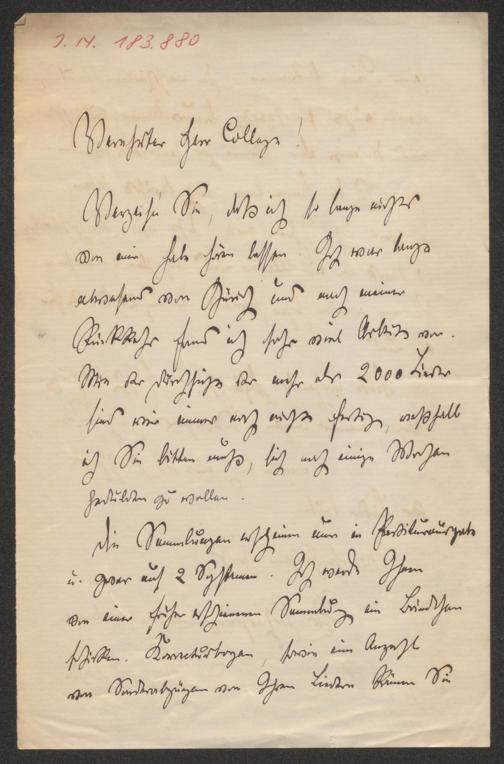 I. N. 183.880
Verehrter Herr College!
Verzeihn Sie, daß ich so lange nichts
von mir habe hören lassen. Ich war lange
abwesend von Zürich und nach meiner
Rückkehr fand ich sehr viel Arbeit vor.
Mit der Durchsicht der mehr als 2000 Lieder
sind wir immer noch nicht fertig, weßhalb
ich Sie bitten muß, sich noch einige Wochen
gedulden zu wollen.
Die Sammlungen erscheinen nur in Partiturausgabe
u. zwar auf 2 Systemen. Ich werde Ihnen
von einer früher erschienenen Sammlung ein Bändchen
schicken. Korrecturbogen, sowie eine Anzahl
von Sonderabzügen von Ihren Liedern können Sie